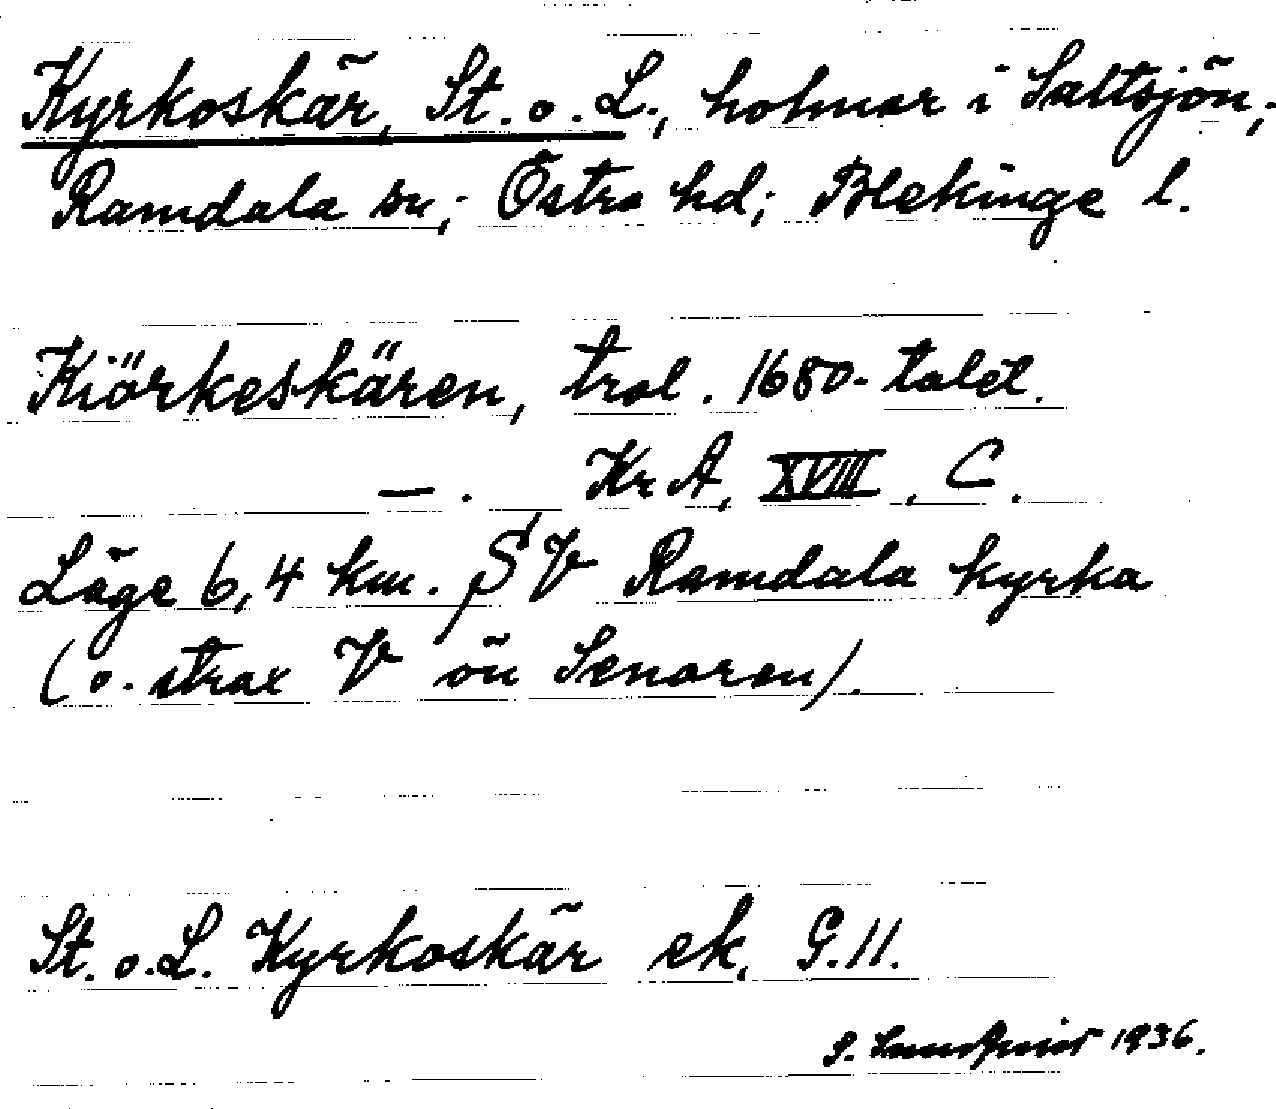 Kyrkoskär, St. o. L., holmar i Saltsjön;
Ramdala sn; Östra hd; Blekinge l.
Kiörkeskären, trol. 1680-talet.
—. KrA, XVIII, C.
Läge 6,4 km. SV Ramdala kyrka
(o. strax V ön Senoren).
St. o. L. Kyrkoskär ek. G.11.
S. 1936.